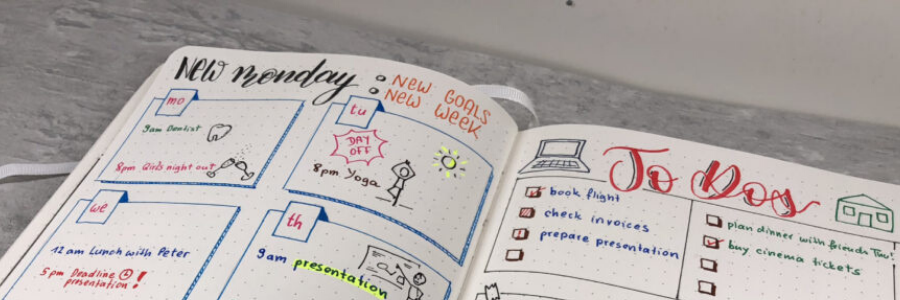 New monday :
NEW GOALS
NEW WEEK
mo
9am Dentist
8pm Girls night out
tu
DAY
OFF
8pm Yoga
we
12 am Lunch with Peter
5pm Deadline
presentation !
th
9am presentation
To Dos
book flight
check invoices
! prepare presentation
plan dinner with friends
buy cinema tickets